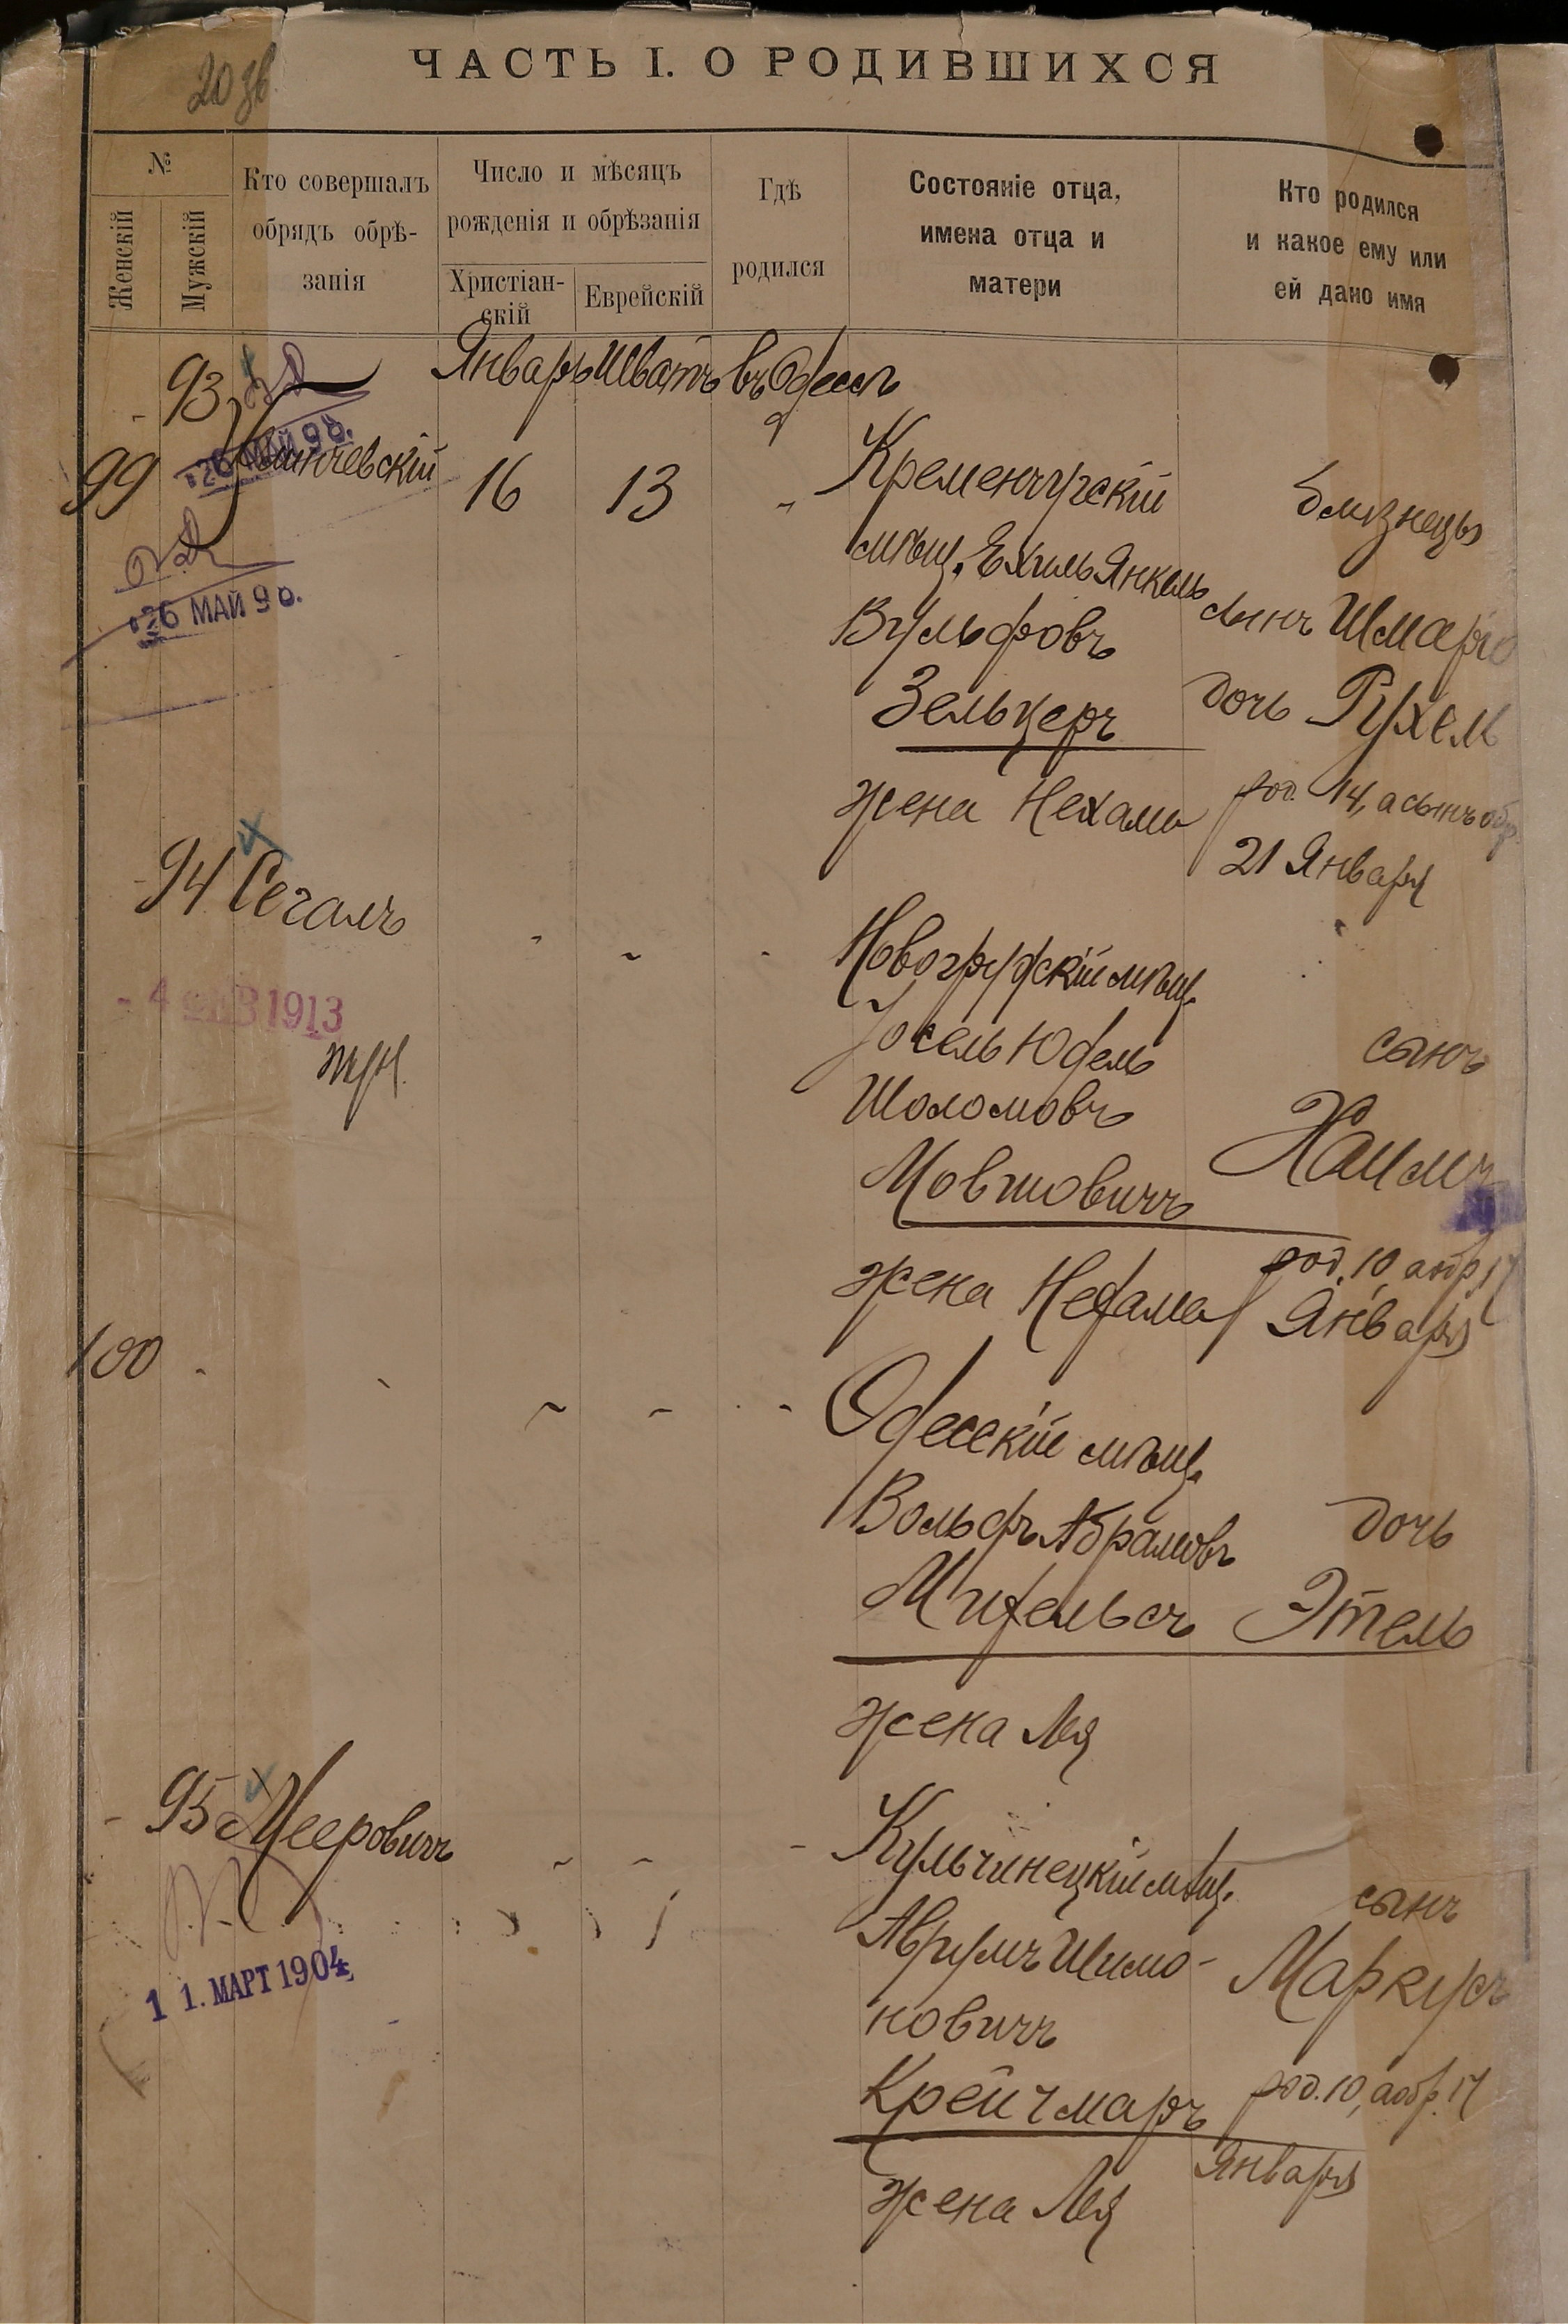 ЧАСТЬ I. О РОДИВШИХСЯ
№
Женскій
Мужскій
Кто совершалъ
обрядъ обрѣ-
занія
Число и мѣсяцъ
рожденія и обрѣзанія
Христіан-
скій
Еврейскій
Гдѣ
родился
Состояніе отца,
имена отца и
матери
Кто родился
и какое ему или
ей дано имя
93
Январь Шватъ въ Одессѣ
26 МАЙ 90.
99
16 13
Кременчугскій
мѣщ. Ехиль Янкель
Вульфовъ
Зельцеръ
жена Нехама
близнецы
сынъ Шмарю
дочь Рухель
род. 14, а сынъ обр.
21 Января
26 МАЙ 90.
94 Сегалъ
4 1913
Новогрудскій мѣщ.
Іосель Юдель
Шоломовъ
Мовшовичъ
жена Нехама
сынъ
Хаимъ
род. 10, а обр 17
Января
100
Одесскій мѣщ.
Вольфъ Абрамовъ
Михельсъ
жена Лея
дочь
Этель
95 Мееровичъ
11. МАРТ 1904
Кульчинецкій мѣщ.
Аврумъ Шимо-
новичъ
Крейчмаръ
жена Лея
сынъ
Маркусъ
род. 10, а обр. 17
Января